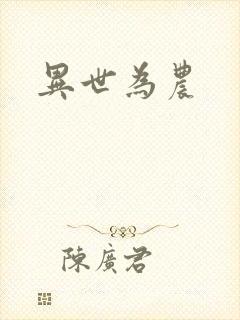 異世為農
陳廣君